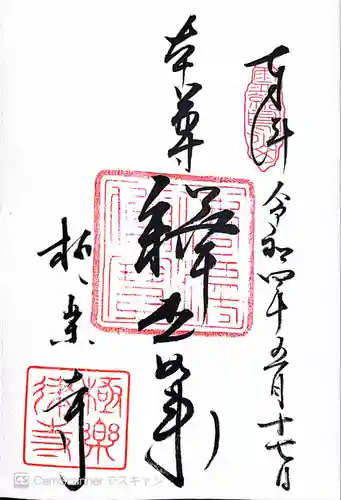 令和四年五月十七日
本尊
釋迦如来
極楽寺
極樂
律寺
CS CamScanner でスキャン